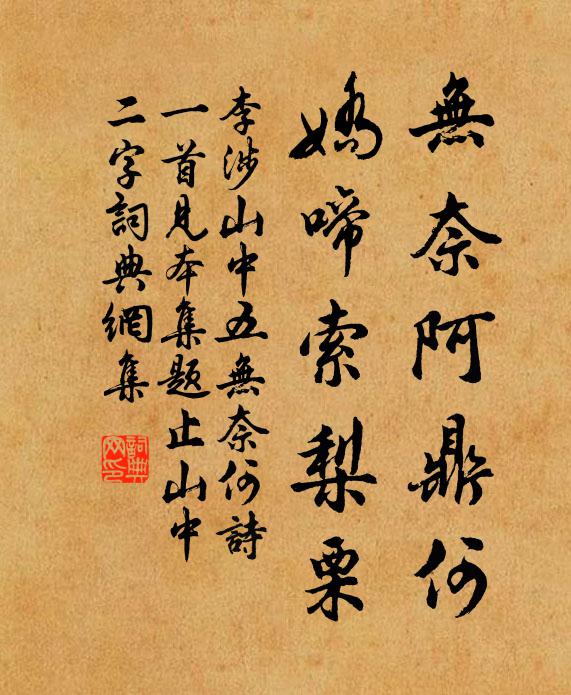 無奈阿鼎何
嬌啼索梨栗
李涉山中五無奈何詩
一首見本集題止山中
二字詞典網集
詞典網印